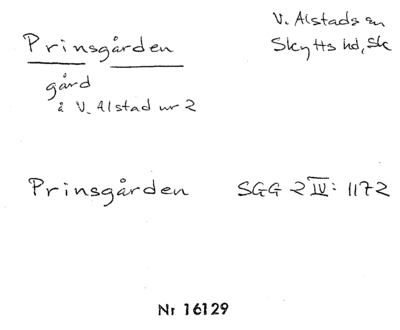 Prinsgården
V. Alstads sn
Skytts hd, Sk
gård
å V. Alstad nr 2
Prinsgården SGG 2 IV: 1172
Nr 16129